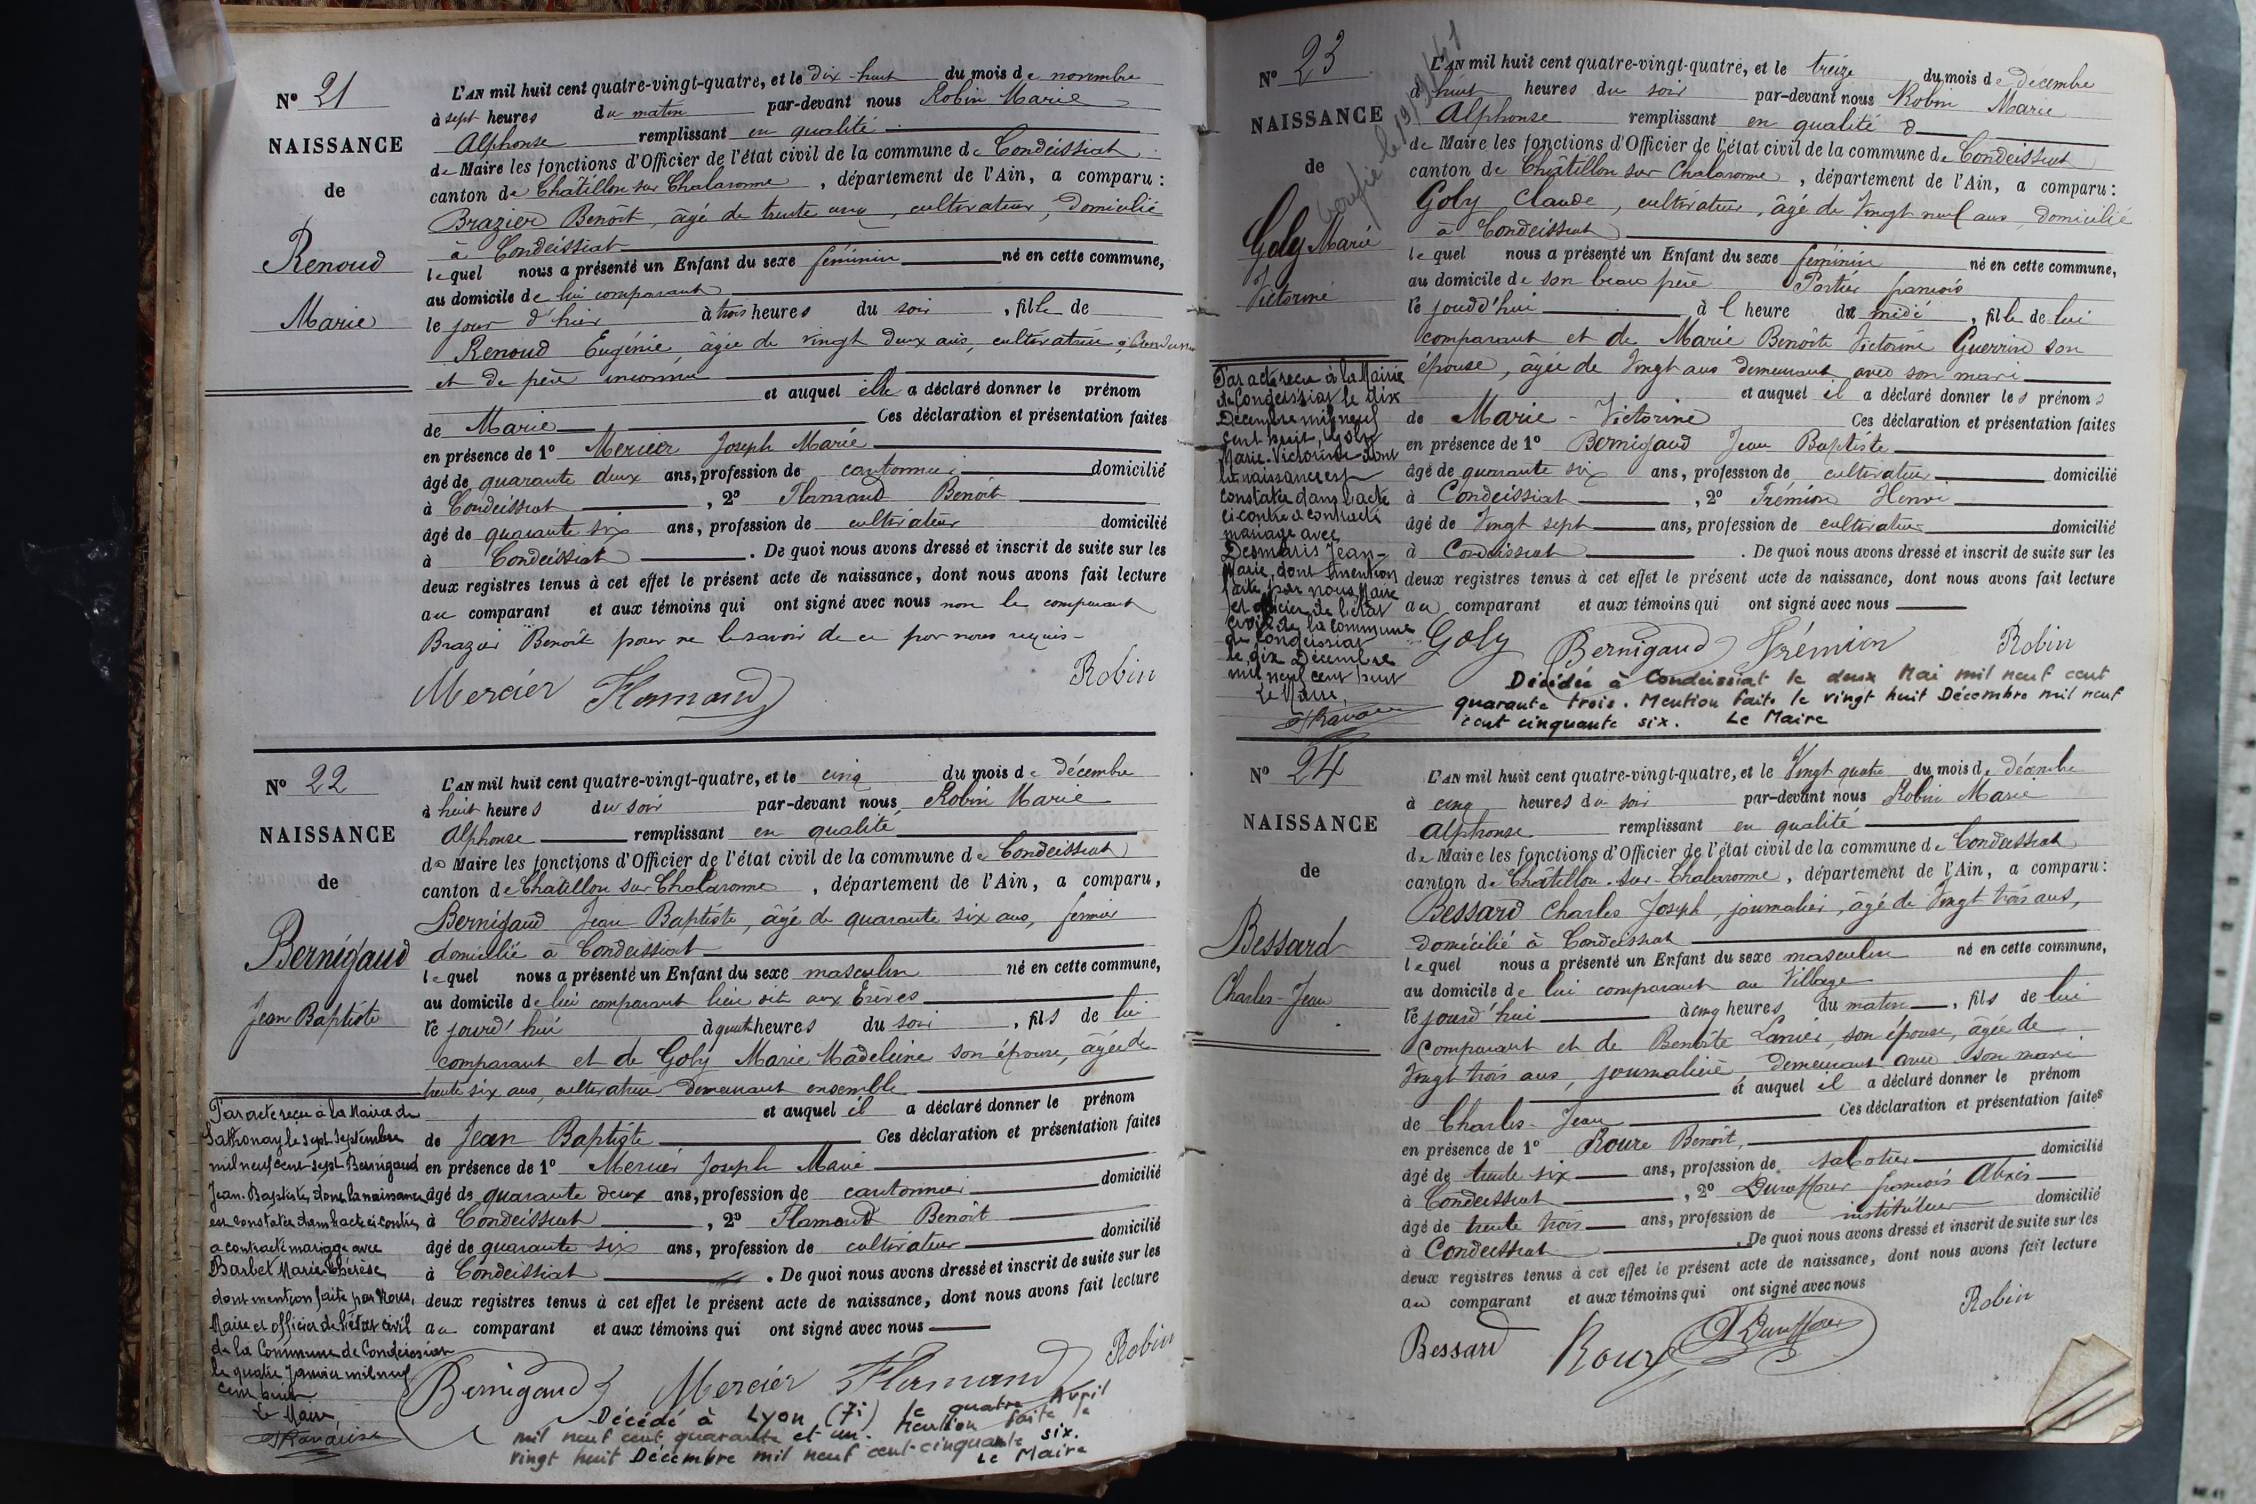 N° 21
NAISSANCE
de
Renoud
Marie
L'AN mil huit cent quatre-vingt-quatre, et le dix-huit du mois de novembre
à sept heures du matin par-devant nous Robin Marie
Alphonse remplissant en qualité
de Maire les fonctions d'Officier de l'état civil de la commune de Condeissiat
canton de Chatillon sur Chalaronne, département de l'Ain, a comparu :
Brazier Benoît, âgé de trente cinq, cultivateur, domicilié
à Condeissiat
lequel nous a présenté un Enfant du sexe féminin né en cette commune,
au domicile de lui comparant
le jour d'hier à trois heures du soir, fille de
Renoud Eugénie, âgée de vingt deux ans, cultivatrice à
et de père inconnu
et auquel elle a déclaré donner le prénom
de Marie Ces déclaration et présentation faites
en présence de 1° Mercier Joseph Marie
âgé de quarante deux ans, profession de cantonnier domicilié
à Condeissiat, 2° Flamand Benoît
âgé de quarante six ans, profession de cultivateur domicilié
à Condeissiat. De quoi nous avons dressé et inscrit de suite sur les
deux registres tenus à cet effet le présent acte de naissance, dont nous avons fait lecture
au comparant et aux témoins qui ont signé avec nous non le comparant
Brazier Benoît pour ne le savoir de ce par nous requis-
Mercier Flamand Robin
N° 22
NAISSANCE
de
Bernigaud
Jean Baptiste
L'AN mil huit cent quatre-vingt-quatre, et le cinq du mois de décembre
à huit heures du soir par-devant nous Robin Marie
Alphonse remplissant en qualité
de Maire les fonctions d'Officier de l'état civil de la commune de Condeissiat
canton de Chatillon sur Chalaronne, département de l'Ain, a comparu,
Bernigaud Jean Baptiste, âgé de quarante six ans, fermier
domicilié à Condeissiat
lequel nous a présenté un Enfant du sexe masculin né en cette commune,
au domicile de lui comparant lieu dit aux
le jourd'hui à quatre heures du soir, fils de lui
comparant et de Goly Marie Madeleine son épouse, âgée de
trente six ans, cultivatrice demeurant ensemble
et auquel il a déclaré donner le prénom
de Jean Baptiste Ces déclaration et présentation faites
en présence de 1° Mercier Joseph Marie
âgé de quarante deux ans, profession de cantonnier domicilié
à Condeissiat, 2° Flamand Benoît
âgé de quarante six ans, profession de cultivateur domicilié
à Condeissiat. De quoi nous avons dressé et inscrit de suite sur les
deux registres tenus à cet effet le présent acte de naissance, dont nous avons fait lecture
au comparant et aux témoins qui ont signé avec nous
Bernigaud Mercier Flamand Robin
Décédé à Lyon (7è) le quatre Avril
mil neuf cent quarante et un. Mention faite le
vingt huit Décembre mil neuf cent cinquante six.
Le Maire
Par acte reçu à la Mairie de
Sathonay le sept septembre
mil neuf cent sept Bernigaud
Jean-Baptiste, dont la naissance
est constatée dans l'acte ci contre
a contracté mariage avec
Barbet Marie-Thérèse
dont mention faite par Nous,
Maire et officier de l'état civil
de la Commune de Condeissiat
le quatre Janvier mil neuf
cent huit
Le Maire,
N° 23
NAISSANCE
de
Goly Marie
Victorine
L'AN mil huit cent quatre-vingt-quatre, et le treize du mois de décembre
à huit heures du soir par-devant nous Robin Marie
Alphonse remplissant en qualité d
de Maire les fonctions d'Officier de l'état civil de la commune de Condeissiat
canton de Châtillon sur Chalaronne, département de l'Ain, a comparu :
Goly Claude, cultivateur, âgé de vingt neuf ans, domicilié
à Condeissiat
lequel nous a présenté un Enfant du sexe féminin né en cette commune,
au domicile de son beau père Portier françois
le jourd'hui à l heure de midi, fille de lui
comparant et de Marie Benoîte Victorine Guerrin son
épouse, âgée de vingt ans demeurant avec son mari
et auquel il a déclaré donner les prénoms
de Marie-Victorine Ces déclaration et présentation faites
en présence de 1° Bernigaud Jean Baptiste
âgé de quarante six ans, profession de cultivateur domicilié
à Condeissiat, 2° Trémion Henri
âgé de vingt sept ans, profession de cultivateur domicilié
à Condeissiat. De quoi nous avons dressé et inscrit de suite sur les
deux registres tenus à cet effet le présent acte de naissance, dont nous avons fait lecture
au comparant et aux témoins qui ont signé avec nous
Goly Bernigaud Trémion Robin
Décédée à Condeissiat le deux Mai mil neuf cent
quarante trois. Mention faite le vingt huit Décembre mil neuf
cent cinquante six. Le Maire
Par acte reçu à la Mairie
de Condeissiat le dix
Décembre mil neuf
cent huit, Goly
Marie-Victorine dont
la naissance est
constatée dans l'acte
ci contre a contracté
mariage avec
Desmaris Jean-
Marie, dont mention
faite par nous, Maire
et officier de l'état
civil de la commune
de Condeissiat
le dix Décembre
mil neuf cent huit
Le Maire
N° 24
NAISSANCE
de
Bessard
Charles-Jean
L'AN mil huit cent quatre-vingt-quatre, et le vingt quatre du mois de décembre
à cinq heures du soir par-devant nous Robin Marie
Alphonse remplissant en qualité
de Maire les fonctions d'Officier de l'état civil de la commune de Condeissiat
canton de Châtillon-sur-Chalaronne, département de l'Ain, a comparu :
Bessard Charles Joseph, journalier, âgé de vingt trois ans,
domicilié à Condeissiat
lequel nous a présenté un Enfant du sexe masculin né en cette commune,
au domicile de lui comparant au Village
le jourd'hui à cinq heures du matin, fils de lui
comparant et de Benoîte Lanier, son épouse, âgée de
vingt trois ans, journalière demeurant avec son mari
et auquel il a déclaré donner le prénom
de Charles-Jean Ces déclaration et présentation faites
en présence de 1° Roure Benoît,
âgé de trente six ans, profession de sabotier domicilié
à Condeissiat, 2° Duraffour françois Alexis
âgé de trente trois ans, profession de instituteur domicilié
à Condeissiat. De quoi nous avons dressé et inscrit de suite sur les
deux registres tenus à cet effet le présent acte de naissance, dont nous avons fait lecture
au comparant et aux témoins qui ont signé avec nous
Bessard Roux Duraffour Robin